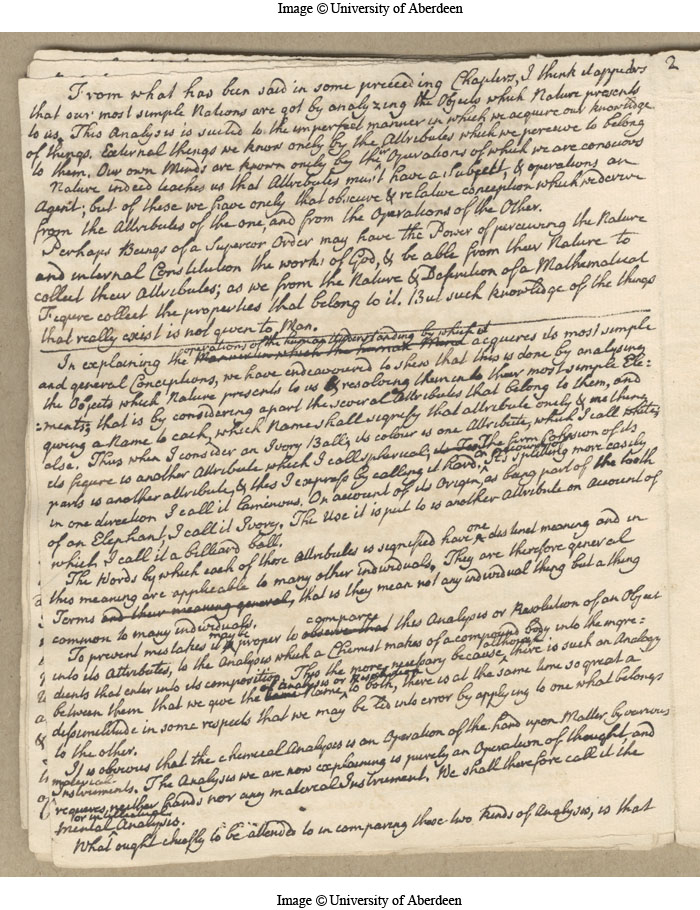 Image © University of Aberdeen
2
From what has been said in some preceeding Chapters, I think it appears
that our most simple Notions are got by analyzing the Objects which Nature presents
to us. This Analysis is suited to the imperfect manner in which we acquire our knowledge
of things. External things we know onely by the Attributes which we perceive to belong
to them. Our own Minds are known onely by the Operations of which we are conscious
Nature indeed teaches us that Attributes must have a Subject, & operations an
Agent; but of these we have onely that obscure & relative conception which we derive
from the Attributes of the one, and from the Operations of the Other.
Perhaps Beings of a Superior Order may have the Power of perceiving the Nature
and internal Constitution the works of God, & be able from their Nature to
collect their Attributes; as we from the Nature & Definition of a Mathematical
Figure collect the properties that belong to it. But such knowledge of the things
that really exist is not given to Man.
operations of the human Understanding by which it
In explaining the Manner in which the human Mind acquires its most simple
and general Conceptions, we have endeavoured to shew that this is done by analysing
the Objects which Nature presents to us & resolving them into their most simple Ele=
=ments; that is by considering apart the several Attributes that belong to them, and
giving a Name to each, which Name shall signify that attribute onely & no thing
else. Thus when I consider an Ivory Ball; its colour is one Attribute, which I call white;
its figure is another Attribute which I call spherical; the firm Cohesion of its
parts is another attribute, & this I express by calling it hard. Its splitting more easily
in one direction I call it Laminous. On account of its Origin, as being part of the tooth
of an Elephant, I call it Ivory. The Use it is put to is another Attribute on Account of
which I call it a billiard ball.
one
The Words by which each of those Attributes is signified have a distinct meaning and in
this meaning are applicable to many other individuals. They are therefore general
Terms and their meaning general, that is they mean not any individual thing but a thing
common to many individuals.
may be compare
To prevent mistakes it is proper to observe that this Analysis or Resolution of an Object
into its Attributes, to the Analysis which a Chemist makes of a compound body into the ingre=
dients that enter into its composition. This the more necessary because although there is such an Analogy
of analysis or Resolution
between them that we give the same Name to both, there is at the same time so great a
dissimilitude in some respects that we may be led into error by applying to one what belongs
to the other.
It is obvious that the chemical Analysis is an Operation of the hand upon Matter by various
material
Instruments. The Analysis we are now explaining is purely an Operation of thought and
requires neither hands nor any material Instrument. We shall therefore call it the
or intellectual
mental Analysis.
What ought chiefly to be attended to in comparing these two kinds of Analyses, is that
Image © University of Aberdeen